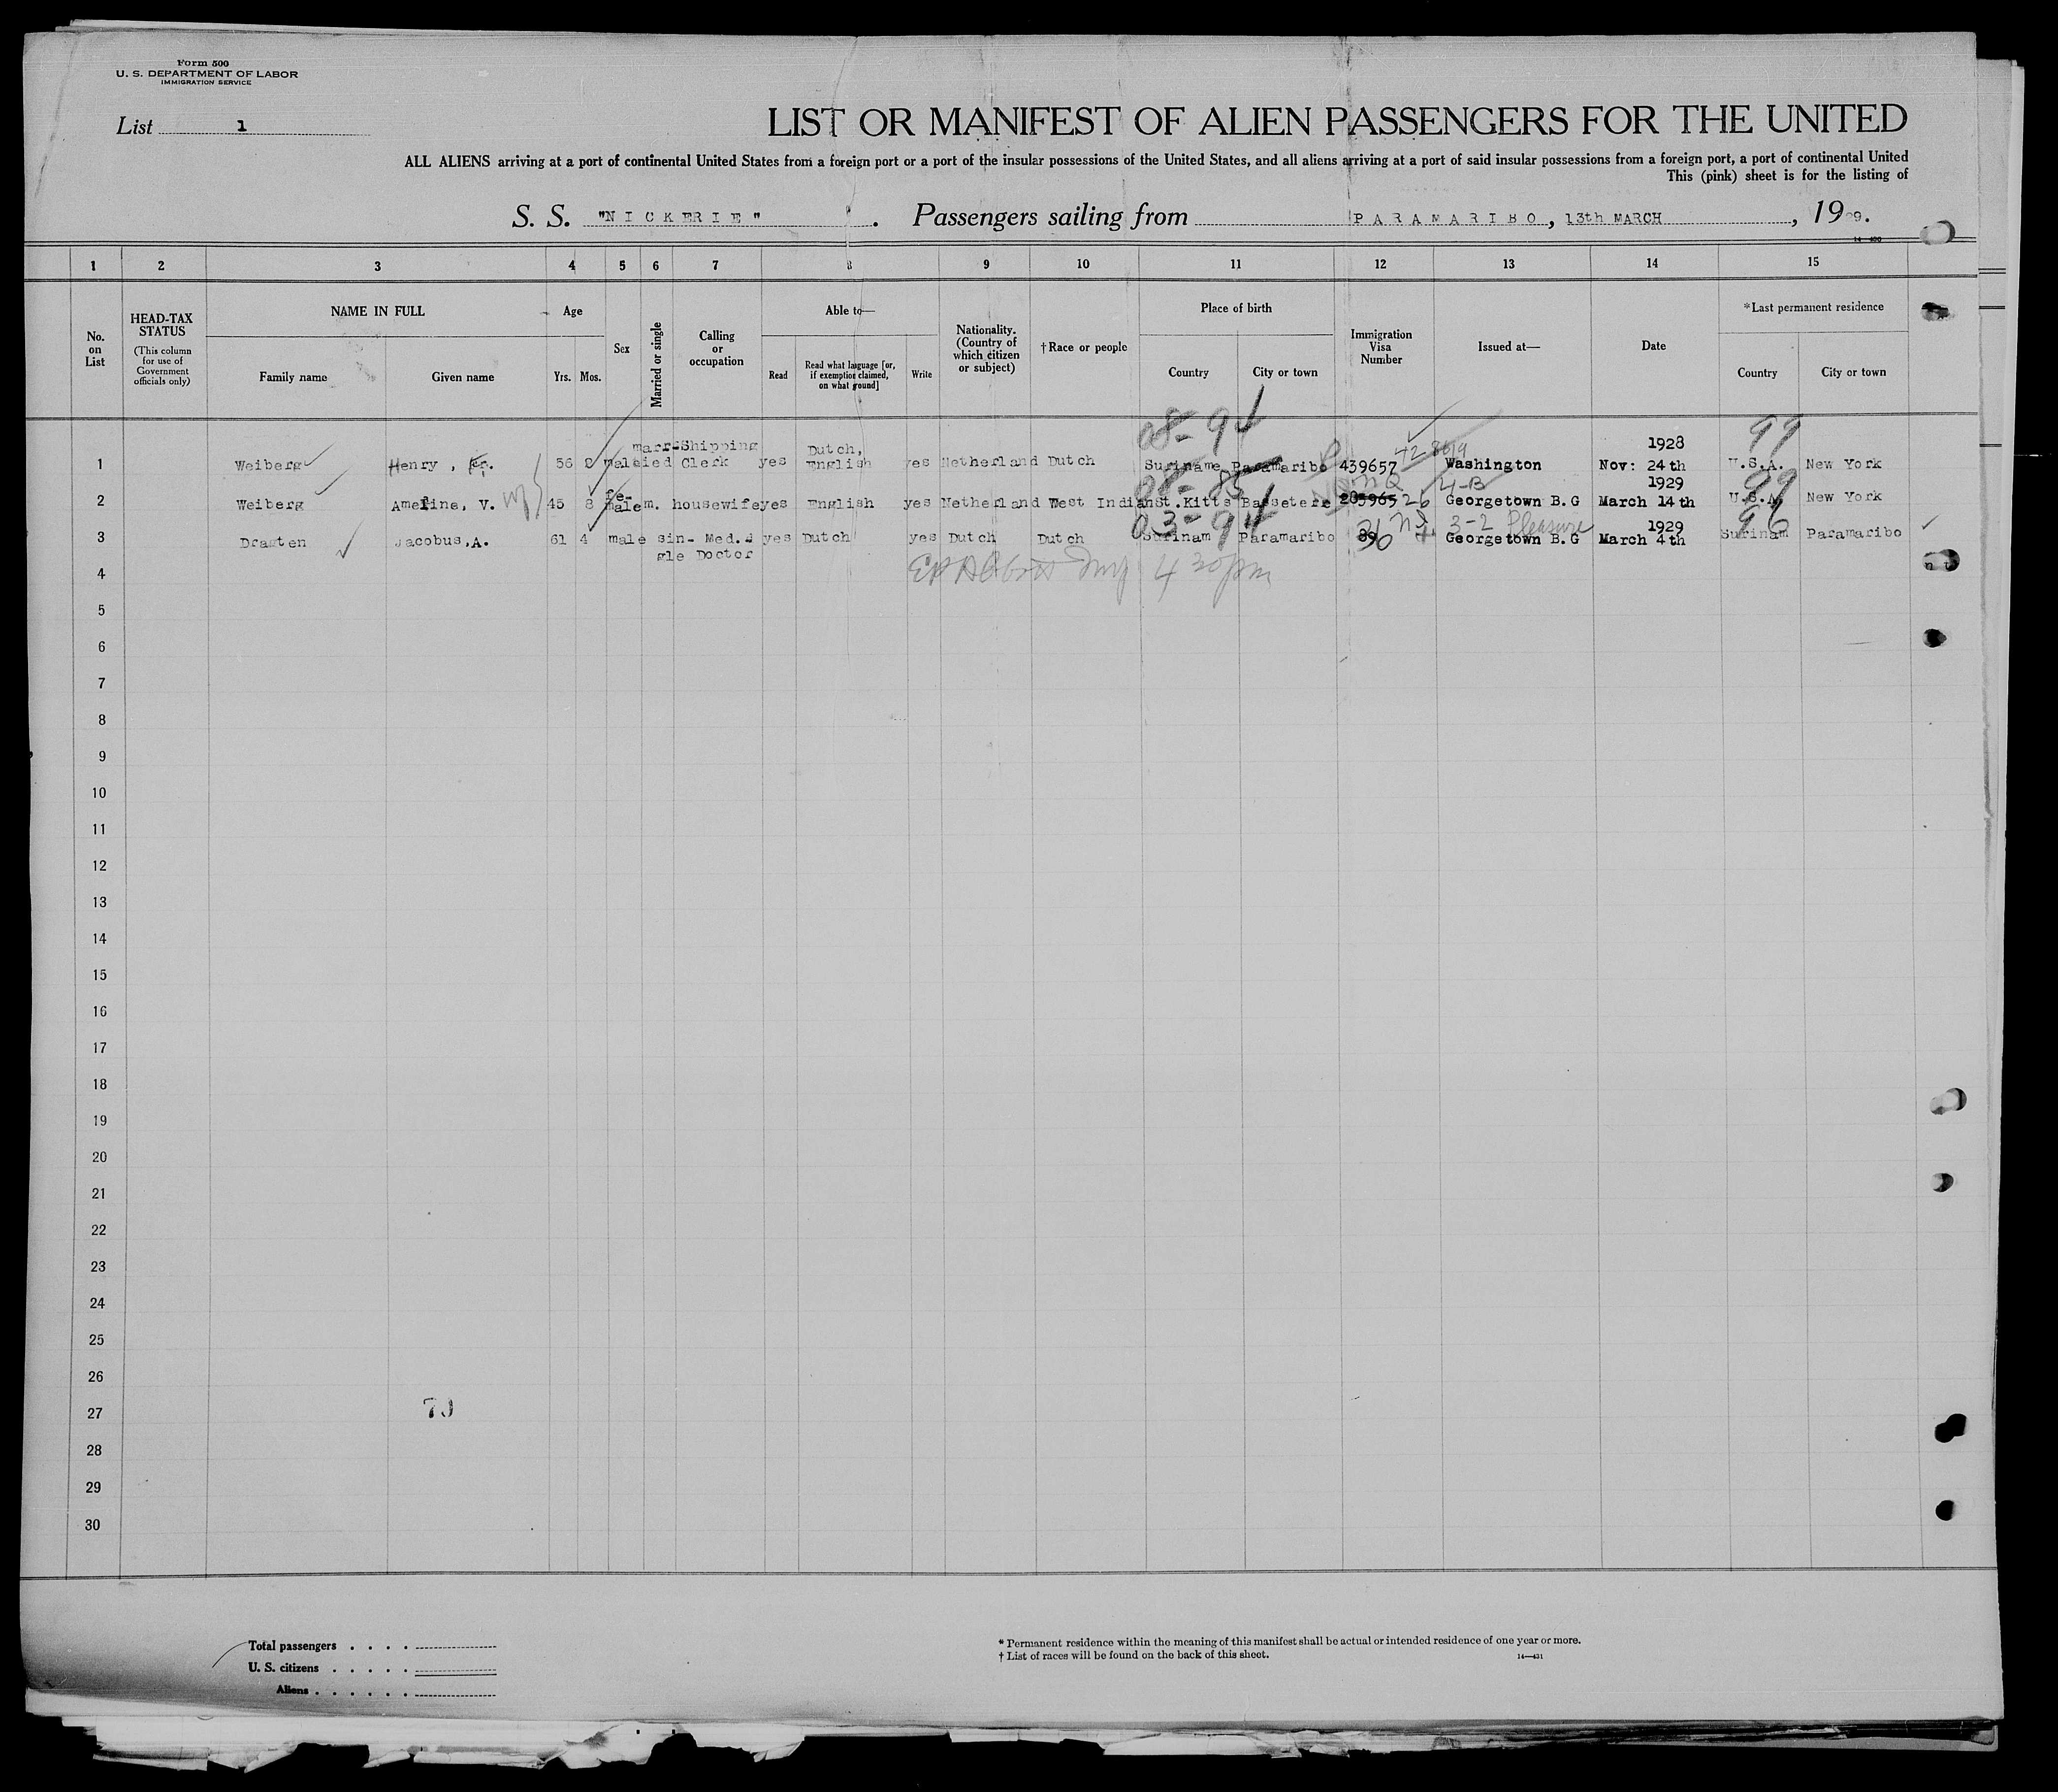 Form 500
U. S. DEPARTMENT OF LABOR
IMMIGRATION SERVICE
List 1
LIST OR MANIFEST OF ALIEN PASSENGERS FOR THE UNITED
ALL ALIENS arriving at a port of continental United States from a foreign port or a port of the insular possessions of the United States, and all aliens arriving at a port of said insular possessions from a foreign port, a port of continental United
This (pink) sheet is for the listing of
S. S. "NICKERIE". Passengers sailing from PARAMARIBO, 13th MARCH, 1929.
14—430
1 2 3 4 5 6 7 8 9 10 11 12 13 14 15
No. on List
HEAD-TAX STATUS
(This column for use of Government officials only)
NAME IN FULL
Family name Given name
Age
Yrs. Mos.
Sex
Married or single
Calling or occupation
Able to—
Read
Read what language [or, if exemption claimed, on what ground]
Write
Nationality. (Country of which citizen or subject)
†Race or people
Place of birth
Country City or town
Immigration Visa Number
Issued at—
Date
*Last permanent residence
Country City or town
08-94 99
marr-Shipping Dutch, 428619 1928
1 Weiberg Henry, 56 male ied Clerk yes English yes Netherland Dutch Suriname Paramaribo 439657 Washington Nov: 24th U.S.A. New York
08-85 NQ 4-B 1929 99
2 Weiberg Ameline, V. 45 8 fe-male m. housewife yes English yes Netherland West Indian St.Kitts Basseterre 203965 26 Georgetown B.G March 14th U.S.A. New York
03-94 3-2 Pleasure 1929 96
3 Dragten Jacobus, A. 61 4 male sin- Med. yes Dutch yes Dutch Dutch Surinam Paramaribo Georgetown B.G March 4th Surinam Paramaribo
gle Doctor
4 4 30 pm
5
6
7
8
9
10
11
12
13
14
15
16
17
18
19
20
21
22
23
24
25
26
27
28
29
30
Total passengers . . . .
U. S. citizens . . . . .
Aliens . . . . . .
* Permanent residence within the meaning of this manifest shall be actual or intended residence of one year or more.
† List of races will be found on the back of this sheet.
14—431